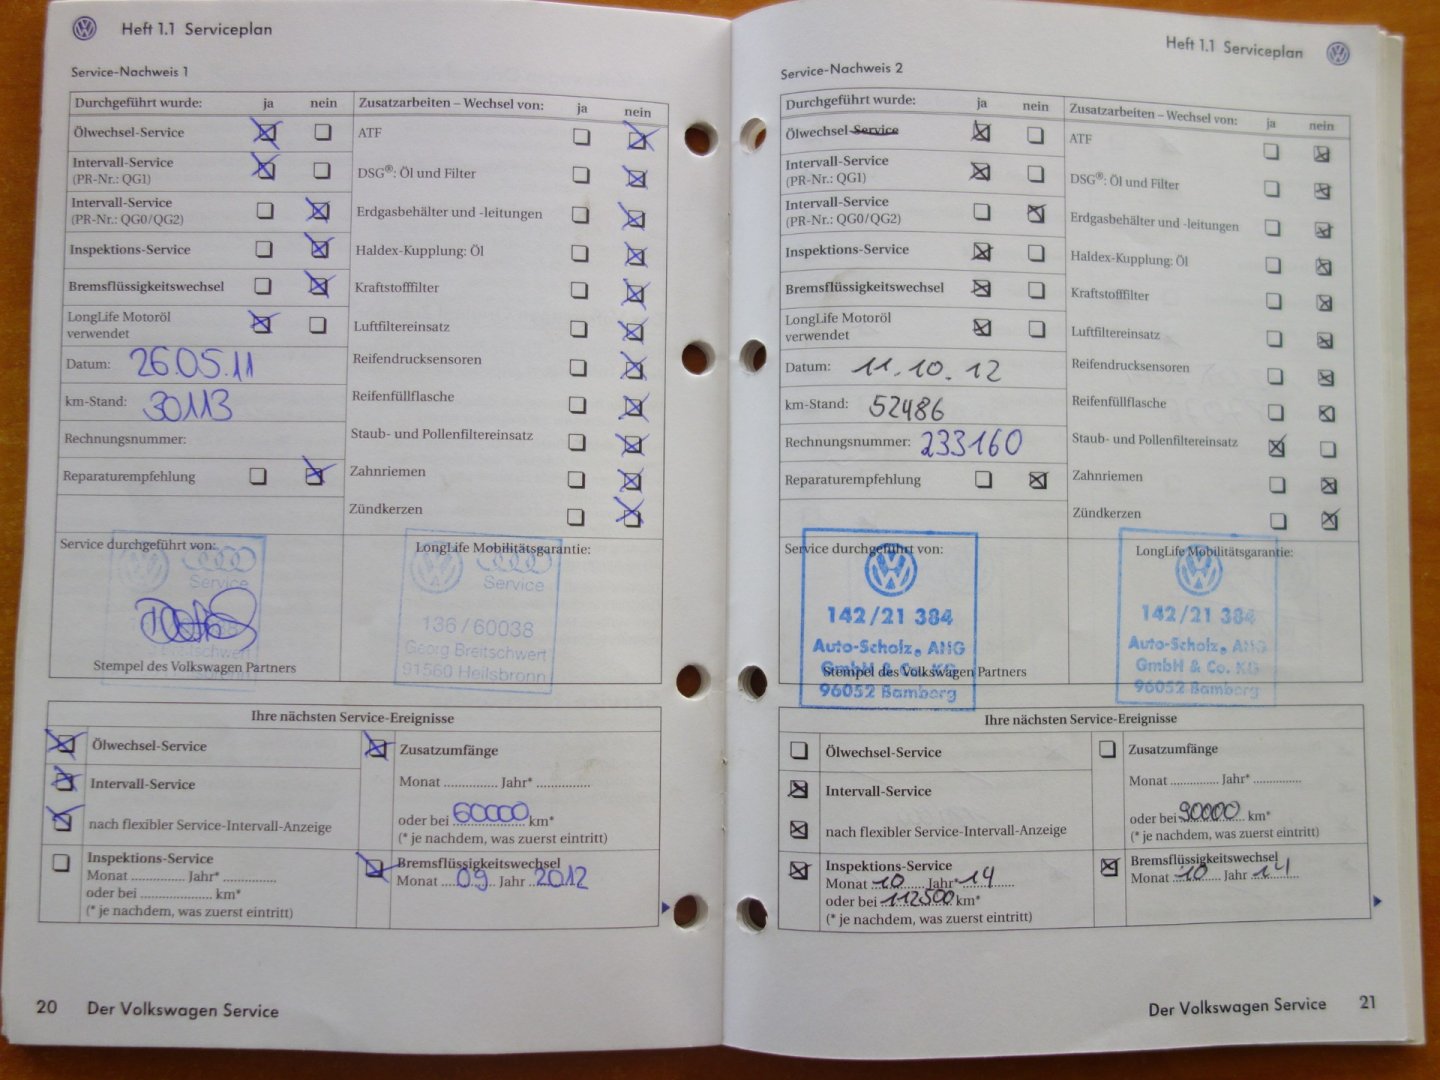 Heft 1.1 Serviceplan
Service-Nachweis 1
Durchgeführt wurde: ja nein
Ölwechsel-Service
Intervall-Service
(PR-Nr.: QG1)
Intervall-Service
(PR-Nr.: QG0/QG2)
Inspektions-Service
Bremsflüssigkeitswechsel
LongLife Motoröl
verwendet
Datum: 26.05.11
km-Stand: 30113
Rechnungsnummer:
Reparaturempfehlung
Zusatzarbeiten – Wechsel von: ja nein
ATF
DSG®: Öl und Filter
Erdgasbehälter und -leitungen
Haldex-Kupplung: Öl
Kraftstofffilter
Luftfiltereinsatz
Reifendrucksensoren
Reifenfüllflasche
Staub- und Pollenfiltereinsatz
Zahnriemen
Zündkerzen
Service durchgeführt von:
Service
Stempel des Volkswagen Partners
LongLife Mobilitätsgarantie:
Service
136/60038
Georg Breitschwert
91560 Heilsbronn
Ihre nächsten Service-Ereignisse
Ölwechsel-Service
Intervall-Service
nach flexibler Service-Intervall-Anzeige
Inspektions-Service
Monat ............... Jahr* ...............
oder bei .................... km*
(* je nachdem, was zuerst eintritt)
Zusatzumfänge
Monat ............... Jahr* ...............
oder bei 60000 km*
(* je nachdem, was zuerst eintritt)
Bremsflüssigkeitswechsel
Monat 09 Jahr 2012
20 Der Volkswagen Service
Heft 1.1 Serviceplan
Service-Nachweis 2
Durchgeführt wurde: ja nein
Ölwechsel-Service
Intervall-Service
(PR-Nr.: QG1)
Intervall-Service
(PR-Nr.: QG0/QG2)
Inspektions-Service
Bremsflüssigkeitswechsel
LongLife Motoröl
verwendet
Datum: 11.10.12
km-Stand: 52486
Rechnungsnummer: 233160
Reparaturempfehlung
Zusatzarbeiten – Wechsel von: ja nein
ATF
DSG®: Öl und Filter
Erdgasbehälter und -leitungen
Haldex-Kupplung: Öl
Kraftstofffilter
Luftfiltereinsatz
Reifendrucksensoren
Reifenfüllflasche
Staub- und Pollenfiltereinsatz
Zahnriemen
Zündkerzen
Service durchgeführt von:
142/21 384
Auto-Scholz, AHG
GmbH & Co. KG
Stempel des Volkswagen Partners
96052 Bamberg
LongLife Mobilitätsgarantie:
142/21 384
Auto-Scholz, AHG
GmbH & Co. KG
96052 Bamberg
Ihre nächsten Service-Ereignisse
Ölwechsel-Service
Intervall-Service
nach flexibler Service-Intervall-Anzeige
Inspektions-Service
Monat 10 Jahr* 14
oder bei 112500 km*
(* je nachdem, was zuerst eintritt)
Zusatzumfänge
Monat ............... Jahr* ...............
oder bei 90000 km*
(* je nachdem, was zuerst eintritt)
Bremsflüssigkeitswechsel
Monat 10 Jahr 14
Der Volkswagen Service 21